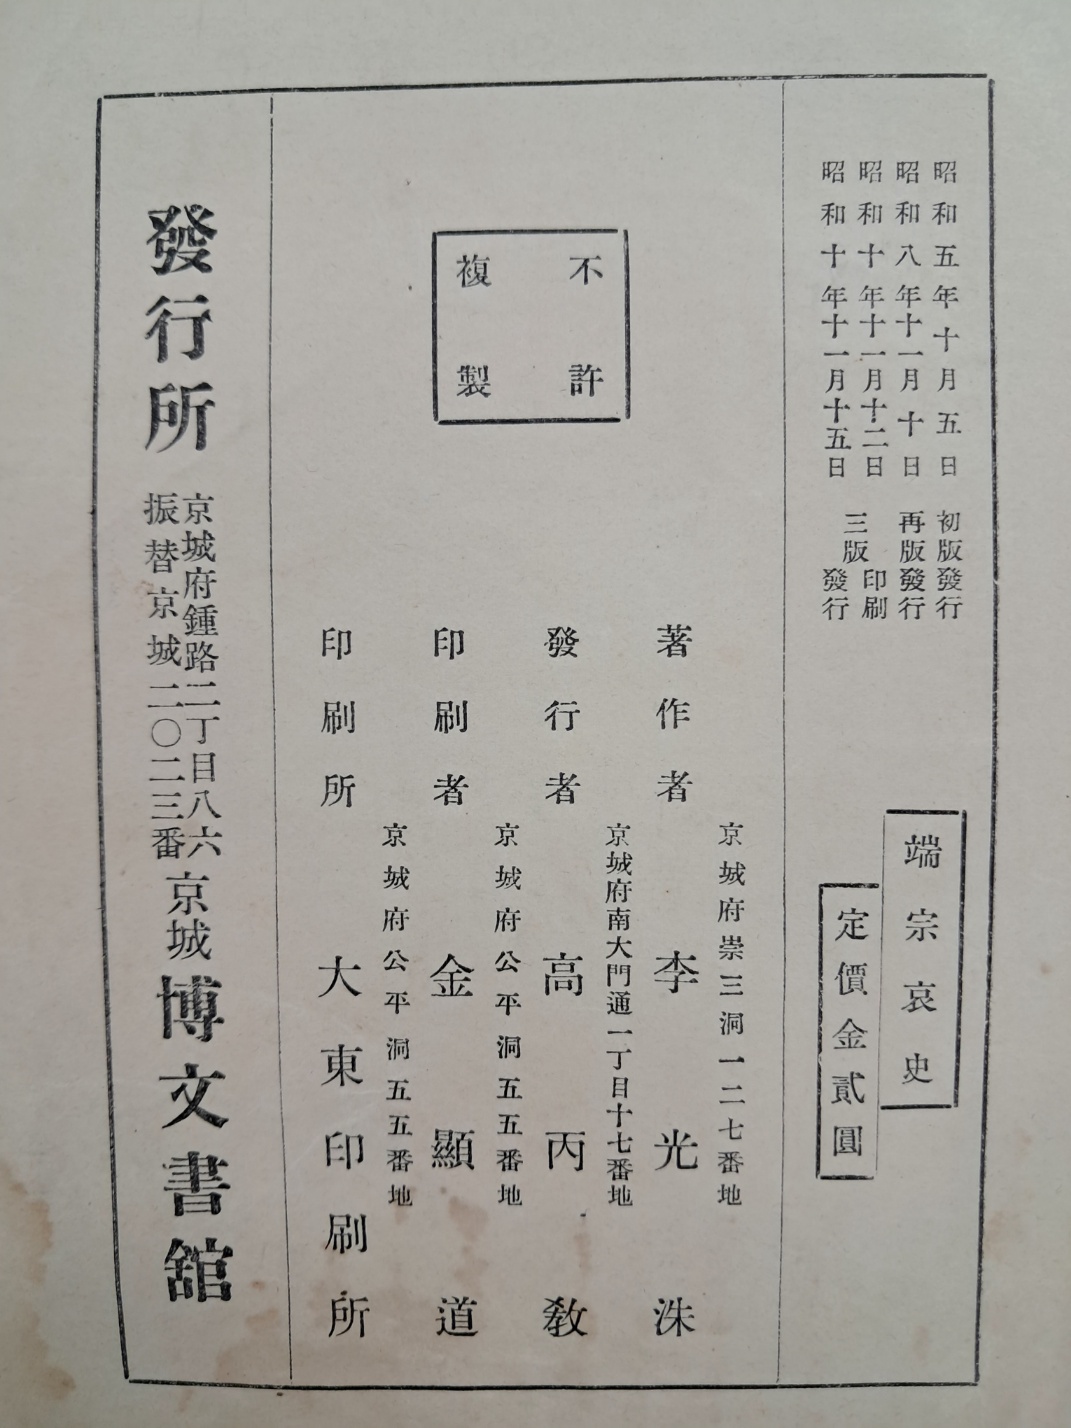 昭和五年十月五日 初版發行
昭和八年十一月十日 再版發行
昭和十年十一月十二日 三版 印刷
昭和十年十一月十五日 發行
端宗哀史
定價金貳圓
不許
複製
京城府崇三洞一二七番地
著作者 李光洙
京城府南大門通一丁目十七番地
發行者 高丙教
京城府公平洞五五番地
印刷者 金顯道
京城府公平洞五五番地
印刷所 大東印刷所
發行所
京城府鍾路二丁目八六
振替京城二〇二三番
京城 博文書舘